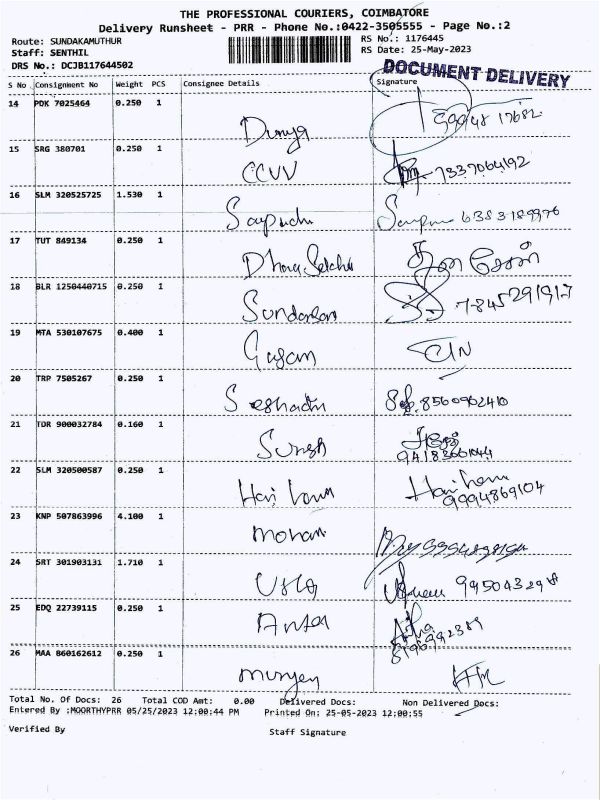 THE PROFESSIONAL COURIERS, COIMBATORE
Delivery Runsheet - PRR - Phone No.:0422-3505555 - Page No.:2
Route: SUNDAKAMUTHUR RS No.: 1176445
Staff: SENTHIL RS Date: 25-May-2023
DRS No.: DCJB117644502
DOCUMENT DELIVERY
S No Consignment No Weight PCS Consignee Details Signature
14 PDK 7025464 0.250 1
Divya
15 SRG 380701 0.250 1
CCVV 7337064192
16 SLM 320525725 1.530 1
6383189976
17 TUT 849134 0.250 1
18 BLR 1250440715 0.250 1
Sundaram
19 MTA 530107675 0.400 1
20 TRP 7505267 0.250 1
Seshadri 8560962410
21 TDR 900032784 0.160 1
Suresh
22 SLM 320500587 0.250 1
Hari
9994869104
23 KNP 507863996 4.100 1
Mohan
24 SRT 301903131 1.710 1
Usha
25 EDQ 22739115 0.250 1
26 MAA 860162612 0.250 1
Total No. Of Docs: 26 Total COD Amt: 0.00 Delivered Docs: Non Delivered Docs:
Entered By :MOORTHYPRR 05/25/2023 12:00:44 PM Printed On: 25-05-2023 12:00:55
Verified By Staff Signature